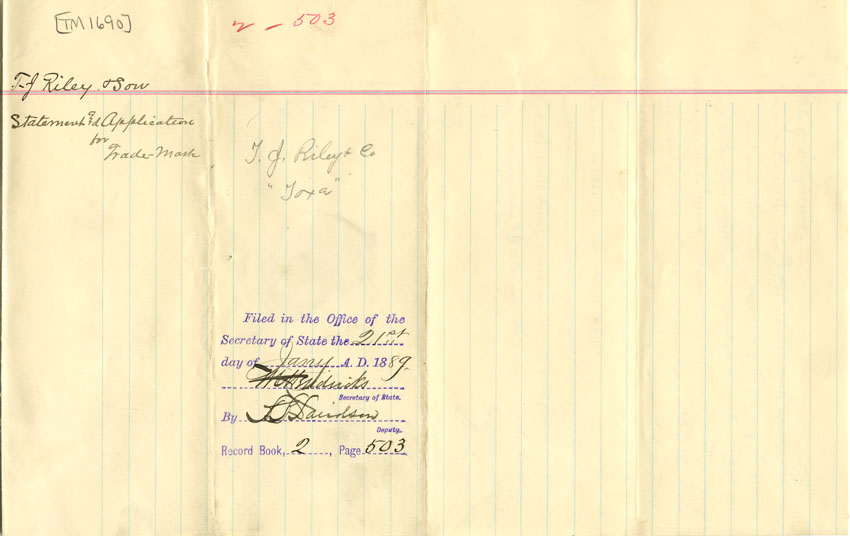 [TM1690]
2 - 503
T-J Riley & Son
Statement & Application
for
Trade-Mark
T. J. Riley & Co
"Toxa"
Filed in the Office of the
Secretary of State the 21st
day of Jany A. D. 1889.
Hendricks
Secretary of State.
By Davidson
Deputy.
Record Book, 2, Page 503